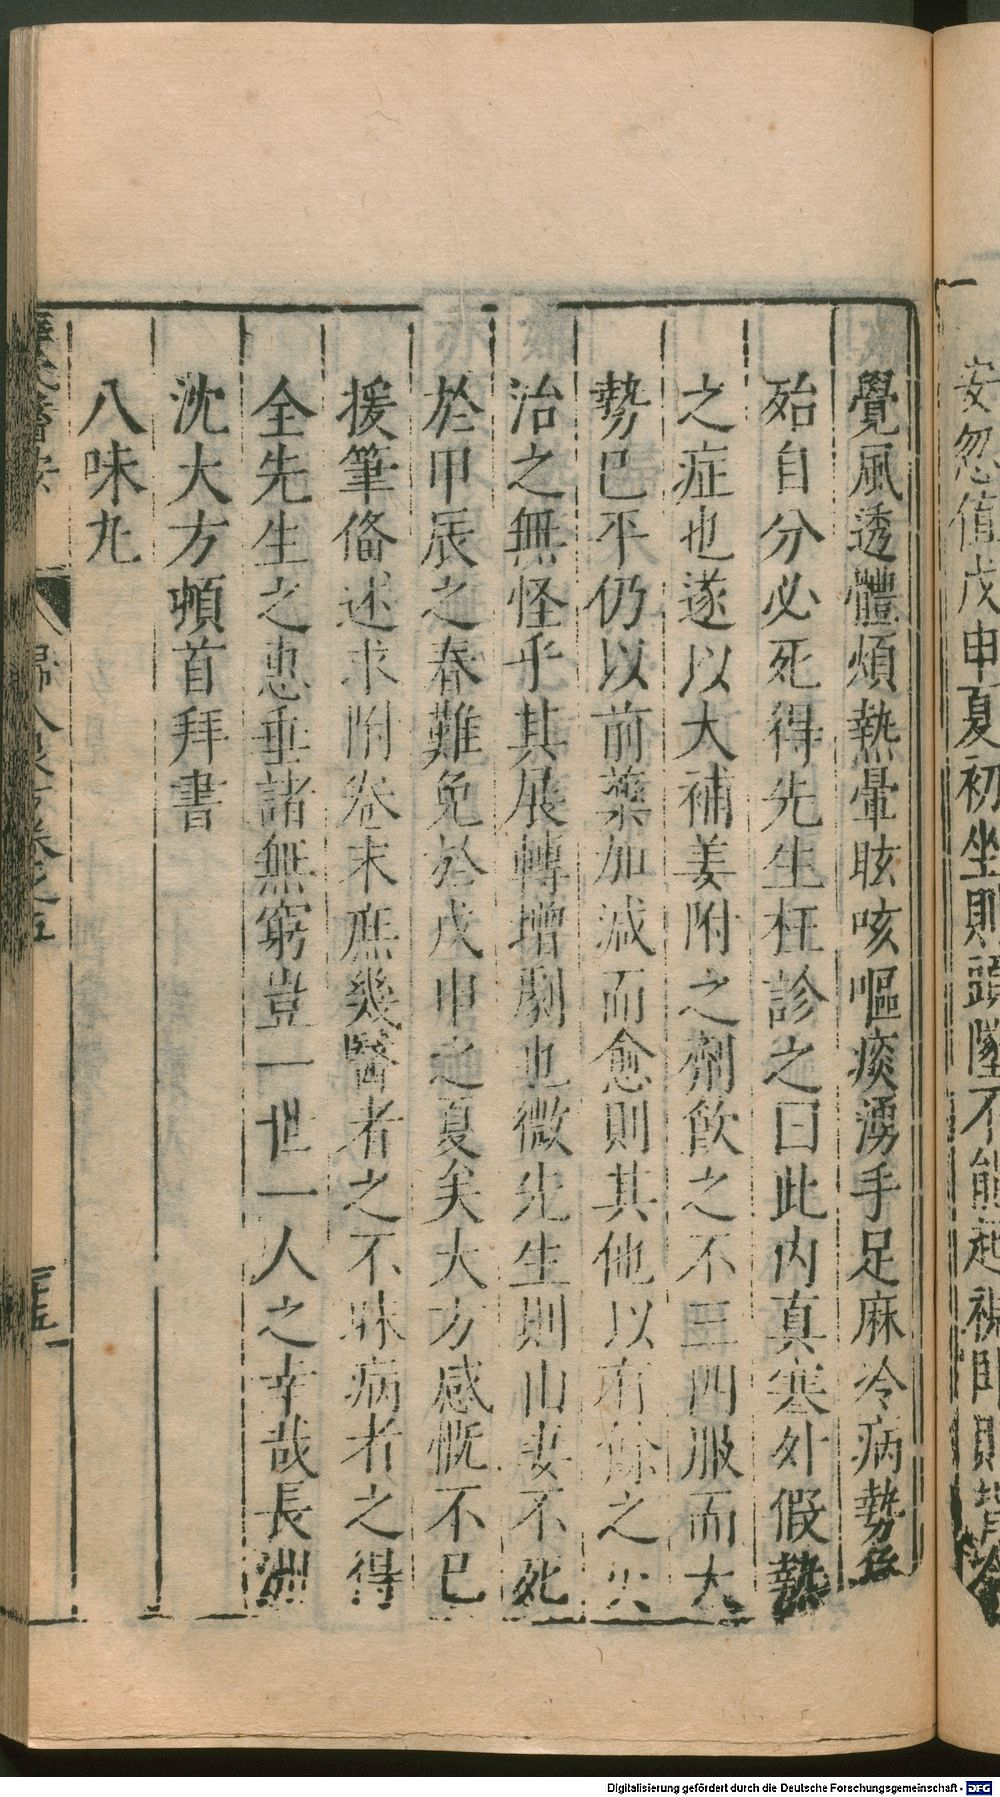 安忽值戊申夏初坐則頭墜不能起視臥則背冷
覺風透體煩熱暈眩咳嘔痰湧手足麻冷病勢危
殆自分必死得先生枉診之曰此内真寒外假熱
之症也遂以大補姜附之劑飲之不三四服而大
勢已平仍以前藥加减而愈則其他以有餘之火
治之無怪乎其展轉增劇也微先生則山妻不死
於甲辰之春難免於戊申之夏矣大方感慨不已
援筆俻述求附卷末庶幾醫者之不昧病者之得
全先生之惠垂諸無窮豈一世一人之幸哉長洲
沈大方頓首拜書
八味丸
薛氏醫按
婦人良方卷之五
Digitalisierung gefördert durch die Deutsche Forschungsgemeinschaft - DFG